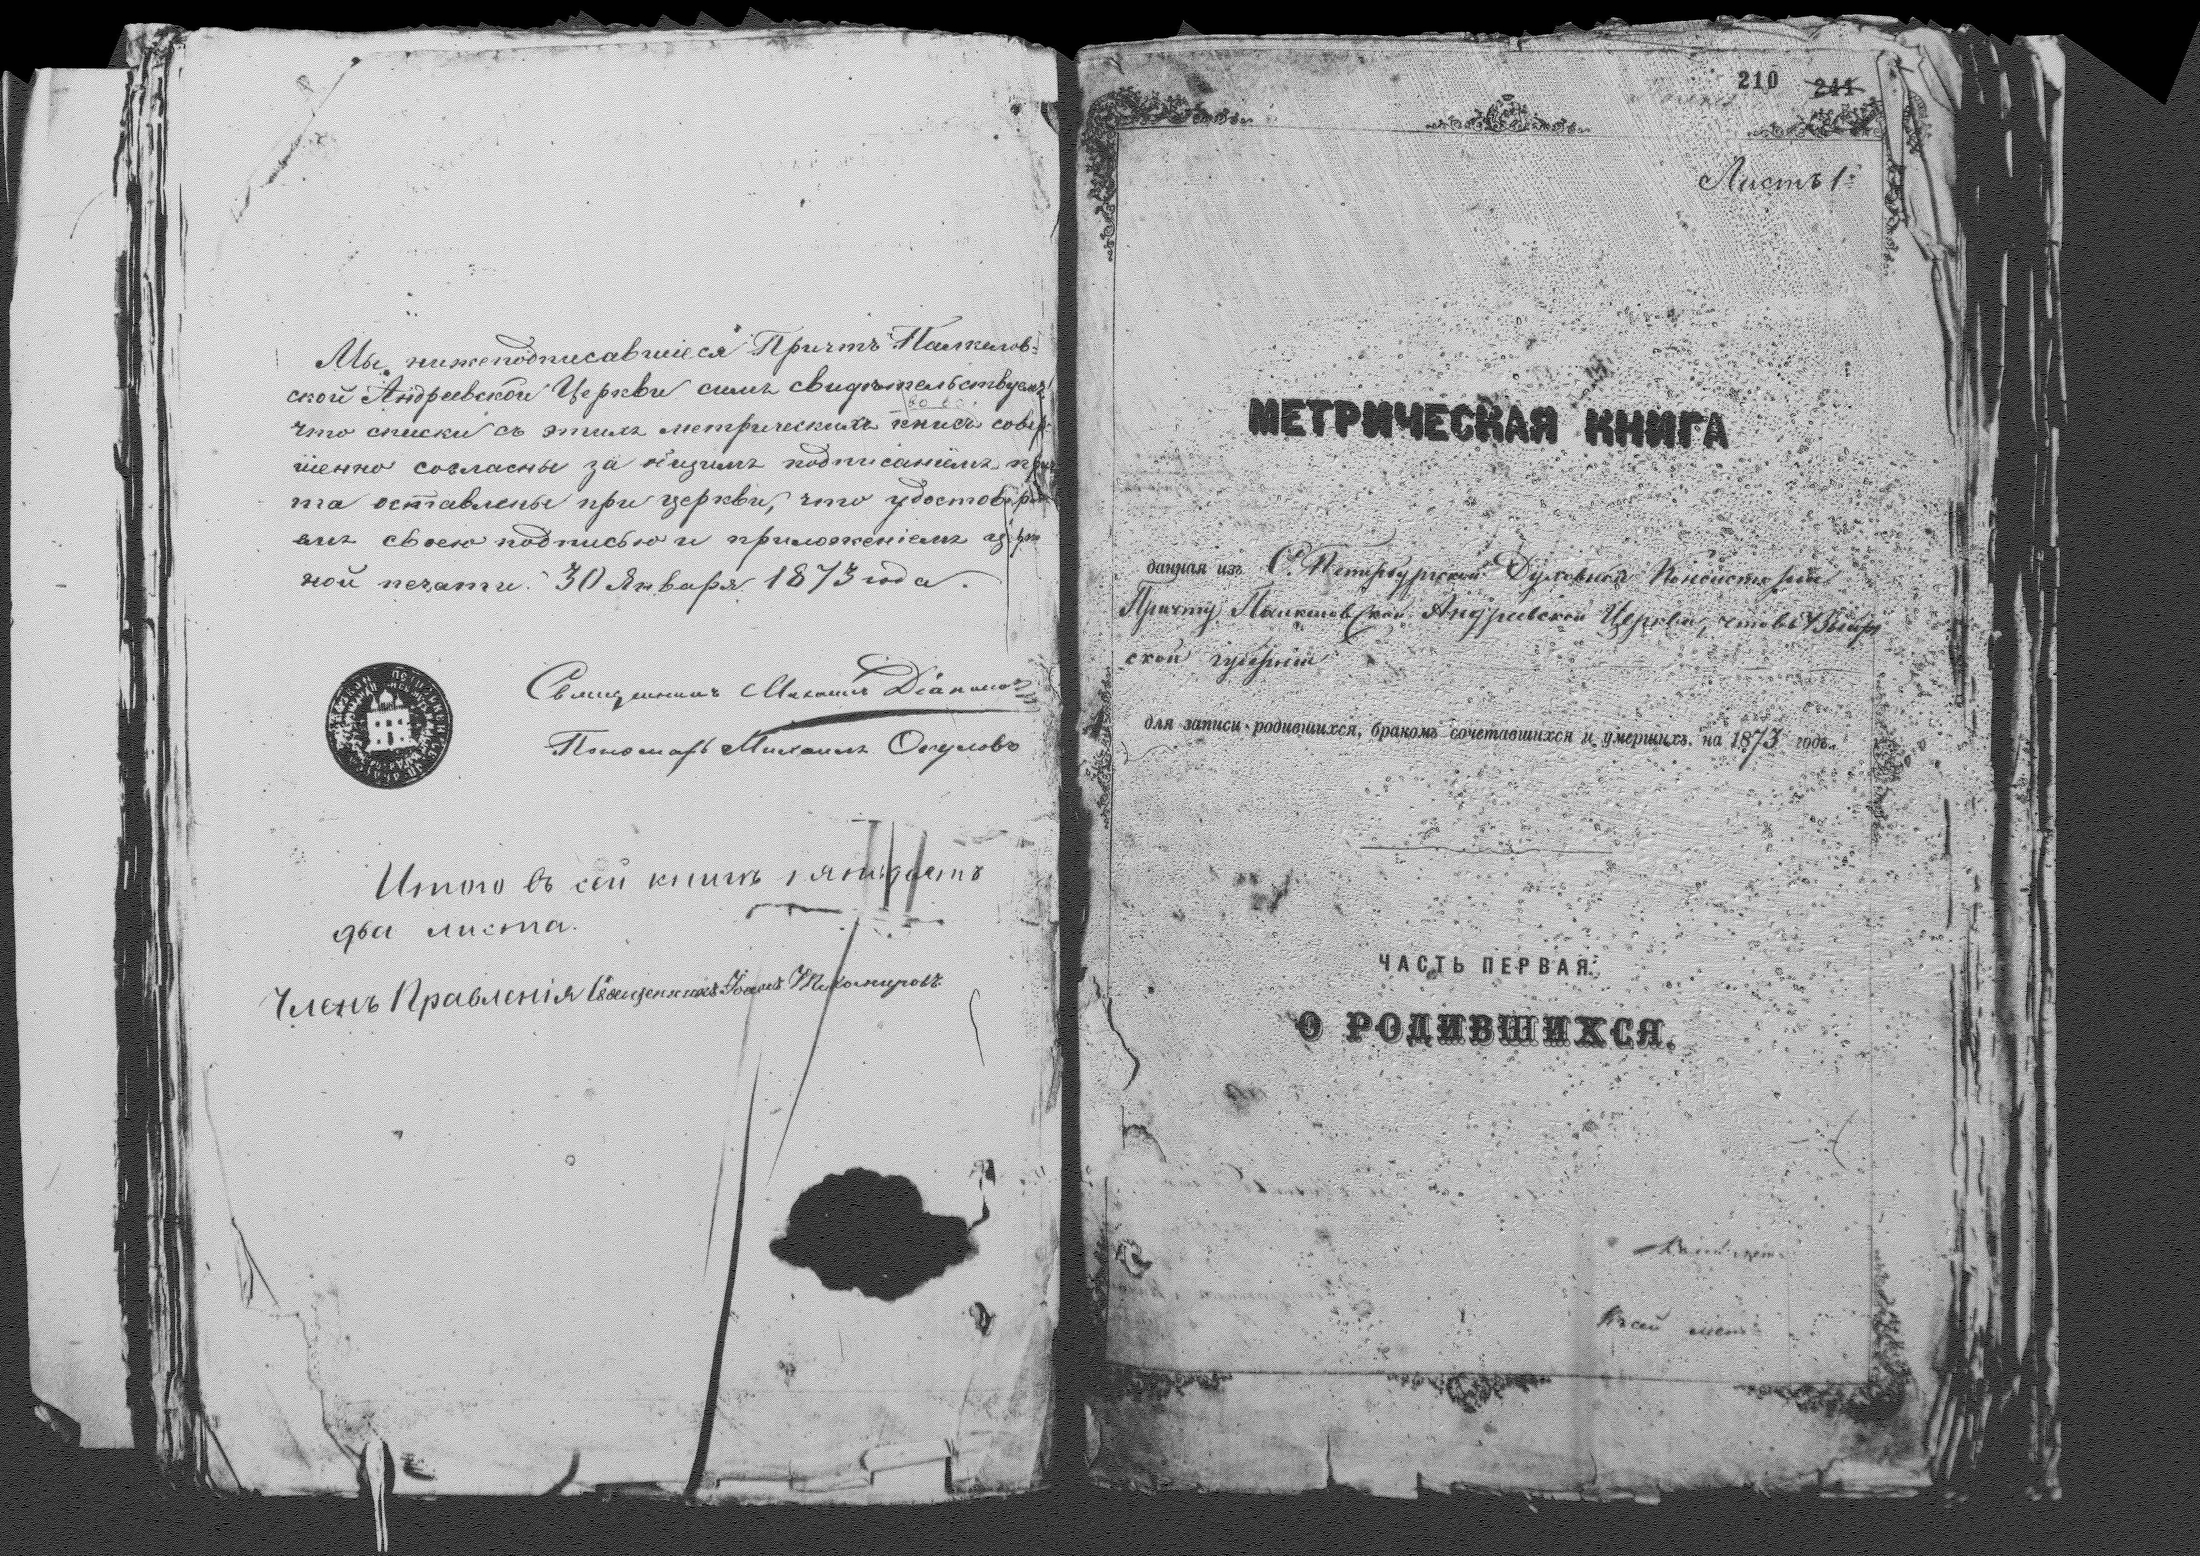 Мы нижеподписавшіеся Причтъ Палкелов-
ской Андреевской Церкви симъ свидѣтельствуемъ
что списки съ этихъ метрическихъ книгъ совер-
шенно согласны за нашимъ подписаніемъ прич
та оставлены при церкви, что удостовѣря
емъ своею подписью и приложеніемъ церков
ной печати. 30 Января 1873 года.
Священникъ Михаилъ Діаконовъ
Пономарь Михаилъ Окуловъ
Итого въ сей книгѣ пятьдесятъ
два листа.
Членъ Правленія Священникъ Іоаннъ Тихомировъ
210 244
Листъ 1й
МЕТРИЧЕСКАЯ КНИГА
данная изъ С. Петербургской Духовной Консисторіи
Причту Палкеловской Андреевской Церкви, что въ Выборг
ской губерніи
для записи родившихся, бракомъ сочетавшихся и умершихъ на 1873 годъ.
ЧАСТЬ ПЕРВАЯ.
О РОДИВШИХСЯ.